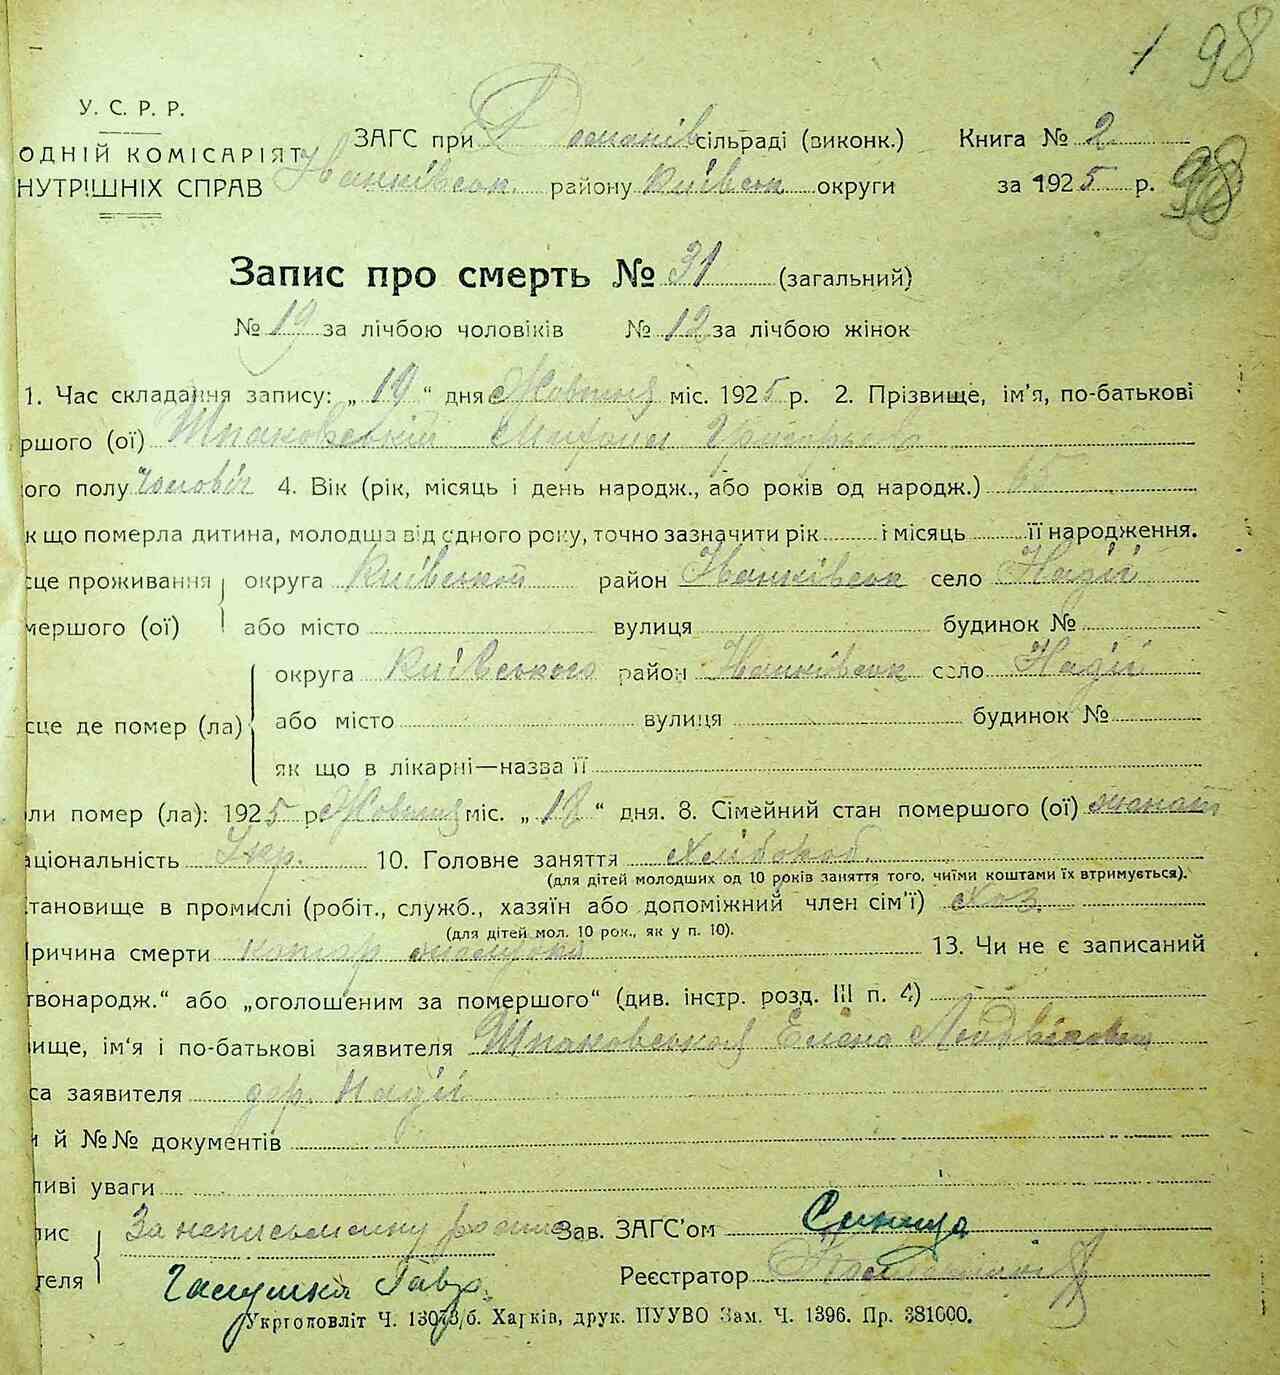 1 98
У. С. Р. Р.
ОДНІЙ КОМІСАРІЯТ
НУТРІШНІХ СПРАВ
ЗАГС при сільраді (виконк.)
Іванківськ. району Київськ округи
Книга № 2
за 1925 р. 98
Запис про смерть № 31 (загальний)
№ 19 за лічбою чоловіків № 12 за лічбою жінок
1. Час складання запису: „ 19 “ дня Жовтня міс. 1925 р. 2. Прізвище, ім'я, по-батькові
ршого (ої) Шпаковський
ого полу Чоловіч 4. Вік (рік, місяць і день народж., або років од народж.) 65
к що померла дитина, молодша від одного року, точно зазначити рік і місяць її народження.
сце проживання округа Київської район Іванківськ село Надії
мершого (ої) або місто вулиця будинок №
округа Київського район Іванківськ село Надії
сце де помер (ла) або місто вулиця будинок №
як що в лікарні—назва її
ли помер (ла): 1925 р. Жовтня міс. „ 18 “ дня. 8. Сімейний стан помершого (ої) жонат
аціональність Укр. 10. Головне заняття хлібороб.
(для дітей молодших од 10 років заняття того, чиїми коштами їх втримується).
тановище в промислі (робіт., служб., хазяїн або допоміжний член сім'ї) Хоз.
(для дітей мол. 10 рок., як у п. 10).
ричина смерти катар 13. Чи не є записаний
твонародж.“ або „оголошеним за помершого“ (див. інстр. розд. III п. 4)
вище, ім'я і по-батькові заявителя Шпаковская Елена
са заявителя дер. Надії
и й №№ документів
ливі уваги
пис За неписьменну Зав. ЗАГС'ом Синиця
теля Галушка Гавр. Реєстратор
Укрголовліт Ч. 13073/б. Харків, друк. ПУУВО Зам. Ч. 1396. Пр. 381000.